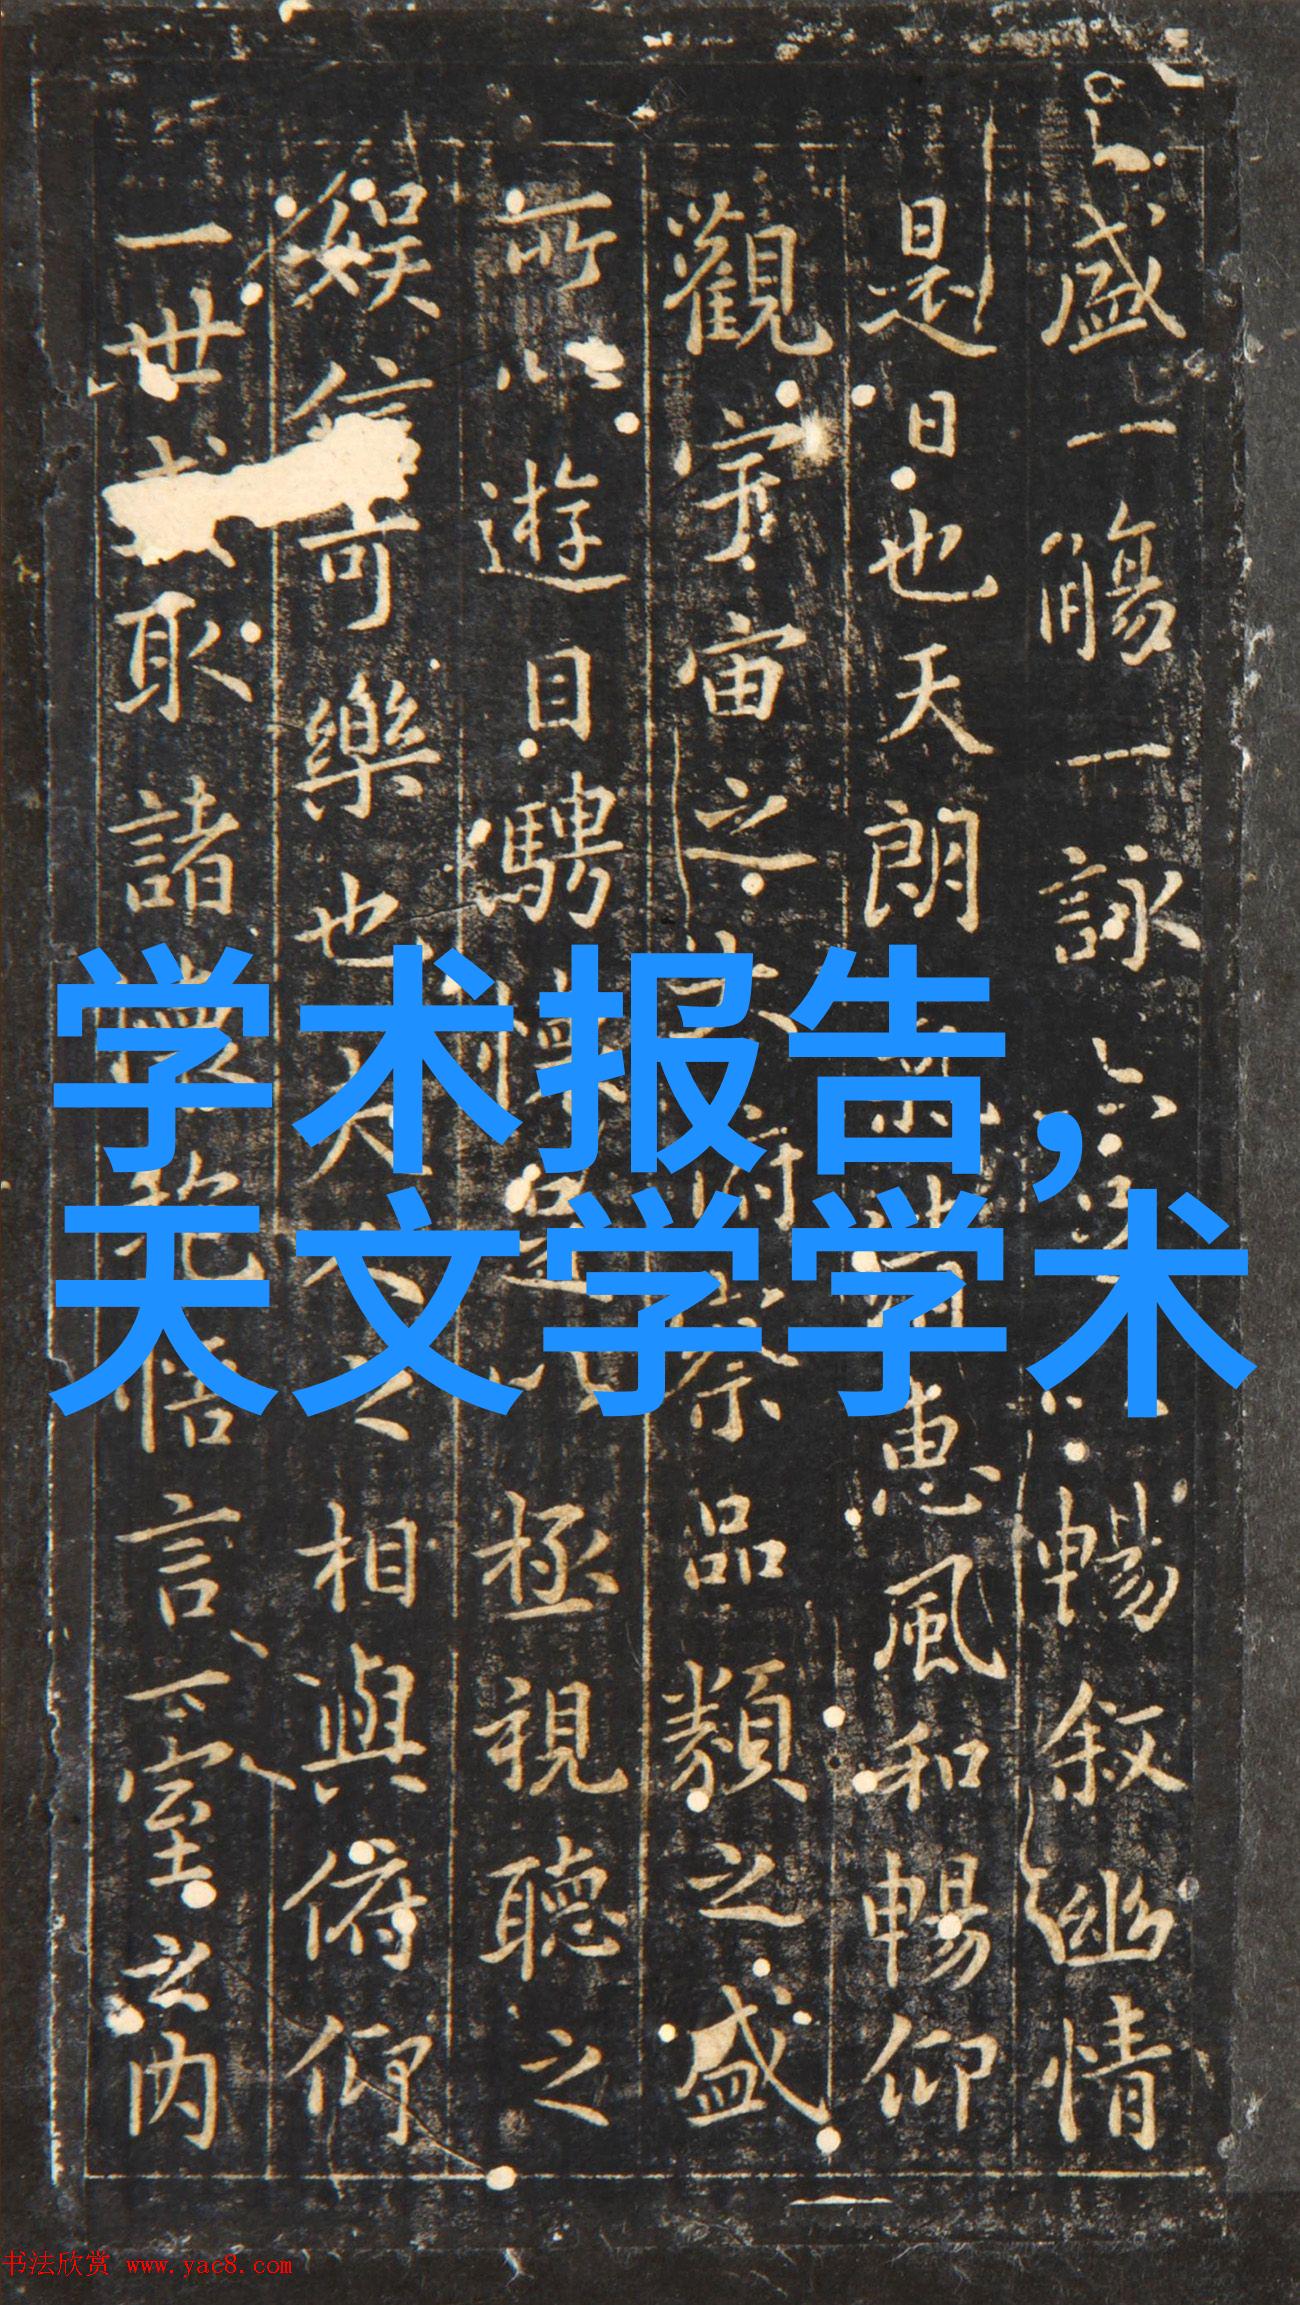 盛一觴一詠亦足以暢叙幽情
是日也天朗氣清惠風和暢仰
觀宇宙之大俯察品類之盛
所以遊目騁懷足以極視聽之
娱信可樂也夫人之相與俯仰
一世或取諸懷抱悟言一室之内
学术报告,
天文学学术
书法欣赏 www.yac8.com